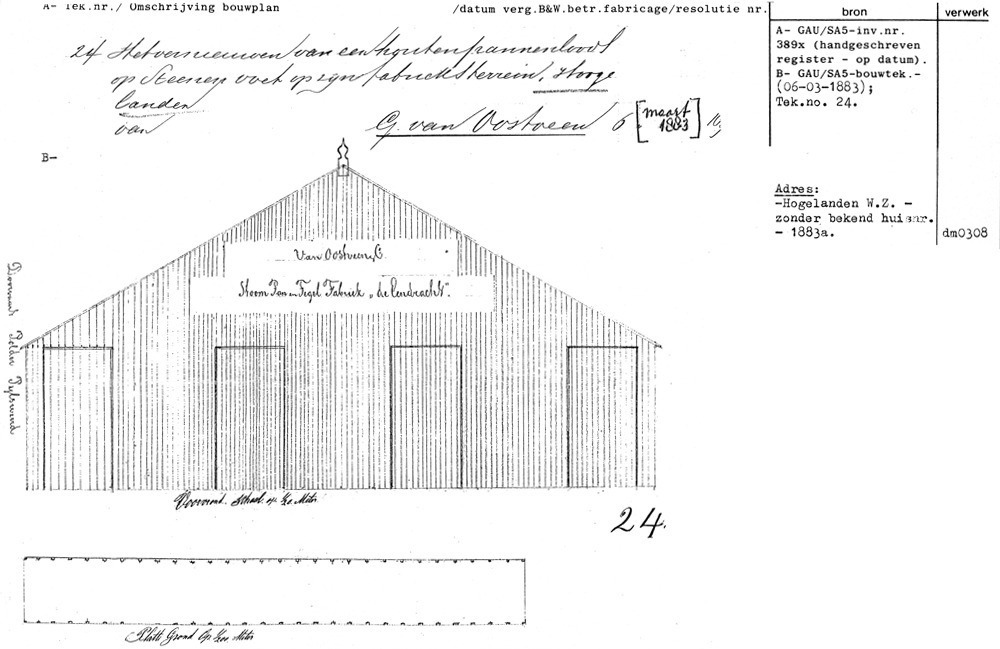 A- Tek.nr./ Omschrijving bouwplan /datum verg.B&W.betr.fabricage/resolutie nr.
bron
verwerk
24 Het vernieuwen van een houten pannenloods
op Steenen voet op zijn fabrieksterrein, Hooge
landen
van G. van Oostveen 6 [maart 1883]
A- GAU/SA5-inv.nr.
389x (handgeschreven
register - op datum).
B- GAU/SA5-bouwtek.-
(06-03-1883);
Tek.no. 24.
Adres:
-Hogelanden W.Z. -
zonder bekend huisnr.
- 1883a.
dm0308
B-
Van Oostveen, C
Stoom Pan en Tegel Fabriek „de Eendracht".
Voorwand. schaal op Meter
24.
Platte Grond Op Meter